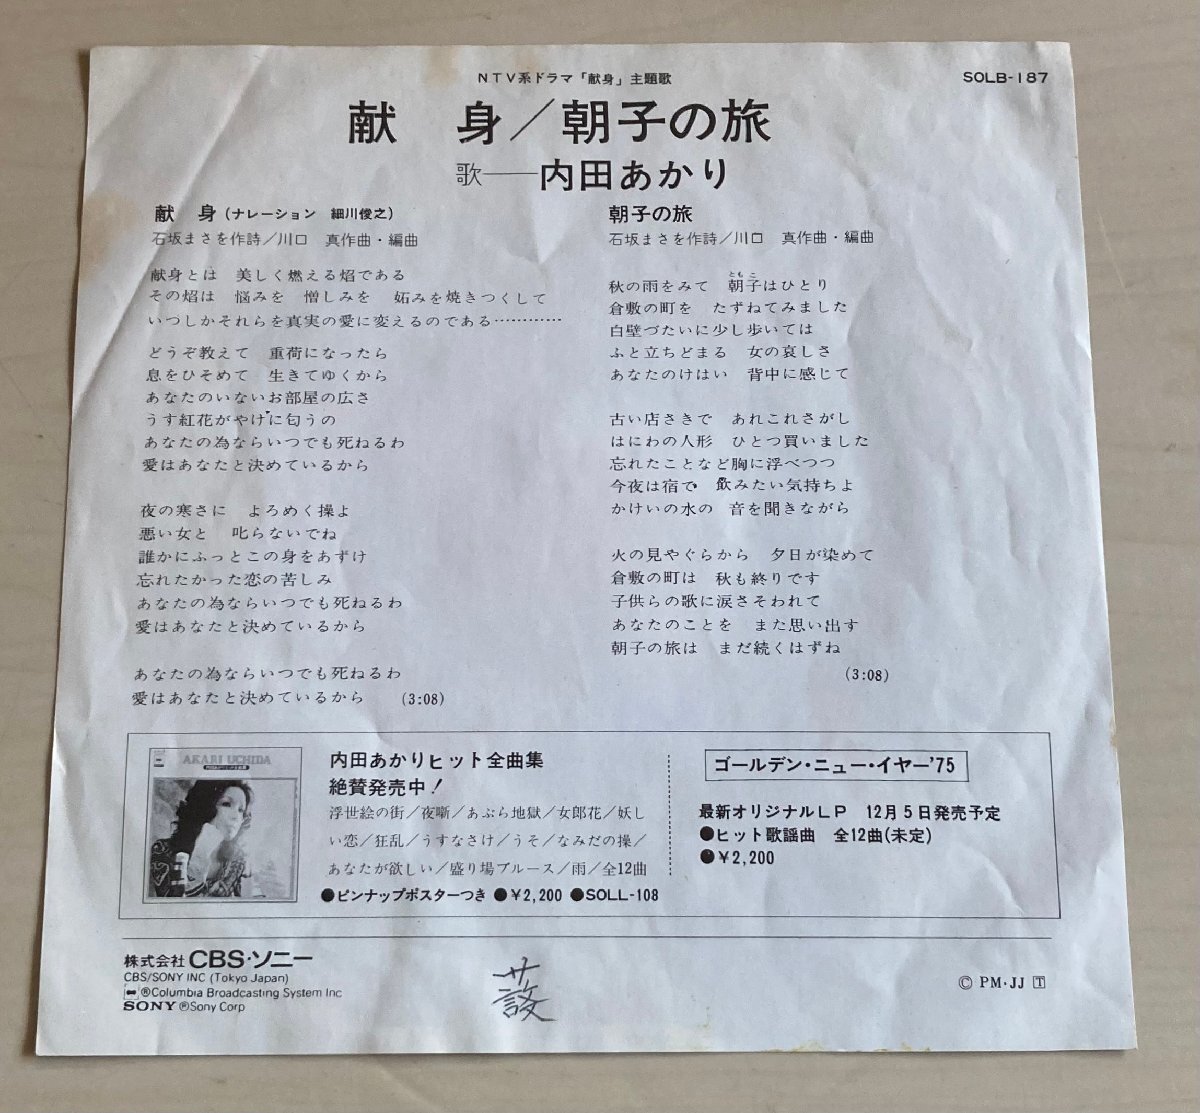 NTV系ドラマ「献身」主題歌
SOLB-187
献 身／朝子の旅
歌──内田あかり
献 身（ナレーション 細川俊之）
石坂まさを作詩／川口 真作曲・編曲
献身とは 美しく燃える焰である
その焰は 悩みを 憎しみを 妬みを焼きつくして
いつしかそれらを真実の愛に変えるのである…………
どうぞ教えて 重荷になったら
息をひそめて 生きてゆくから
あなたのいないお部屋の広さ
うす紅花がやけに匂うの
あなたの為ならいつでも死ねるわ
愛はあなたと決めているから
夜の寒さに よろめく操よ
悪い女と 叱らないでね
誰かにふっとこの身をあずけ
忘れたかった恋の苦しみ
あなたの為ならいつでも死ねるわ
愛はあなたと決めているから
あなたの為ならいつでも死ねるわ
愛はあなたと決めているから (3:08)
朝子の旅
石坂まさを作詩／川口 真作曲・編曲
ともこ
秋の雨をみて 朝子はひとり
倉敷の町を たずねてみました
白壁づたいに少し歩いては
ふと立ちどまる 女の哀しさ
あなたのけはい 背中に感じて
古い店さきで あれこれさがし
はにわの人形 ひとつ買いました
忘れたことなど胸に浮べつつ
今夜は宿で 飲みたい気持ちよ
かけいの水の 音を聞きながら
火の見やぐらから 夕日が染めて
倉敷の町は 秋も終りです
子供らの歌に涙さそわれて
あなたのことを また思い出す
朝子の旅は まだ続くはずね
(3:08)
AKARI UCHIDA
内田あかりヒット全曲集
絶賛発売中！
浮世絵の街／夜噺／あぶら地獄／女郎花／妖し
い恋／狂乱／うすなさけ／うそ／なみだの操／
あなたが欲しい／盛り場ブルース／雨／全12曲
●ピンナップポスターつき ●￥2,200 ●SOLL-108
ゴールデン・ニュー・イヤー'75
最新オリジナルＬＰ 12月5日発売予定
●ヒット歌謡曲 全12曲(未定)
●￥2,200
株式会社 CBS・ソニー
CBS/SONY INC (Tokyo Japan)
®Columbia Broadcasting System Inc
SONY ®Sony Corp
© PM・JJ T